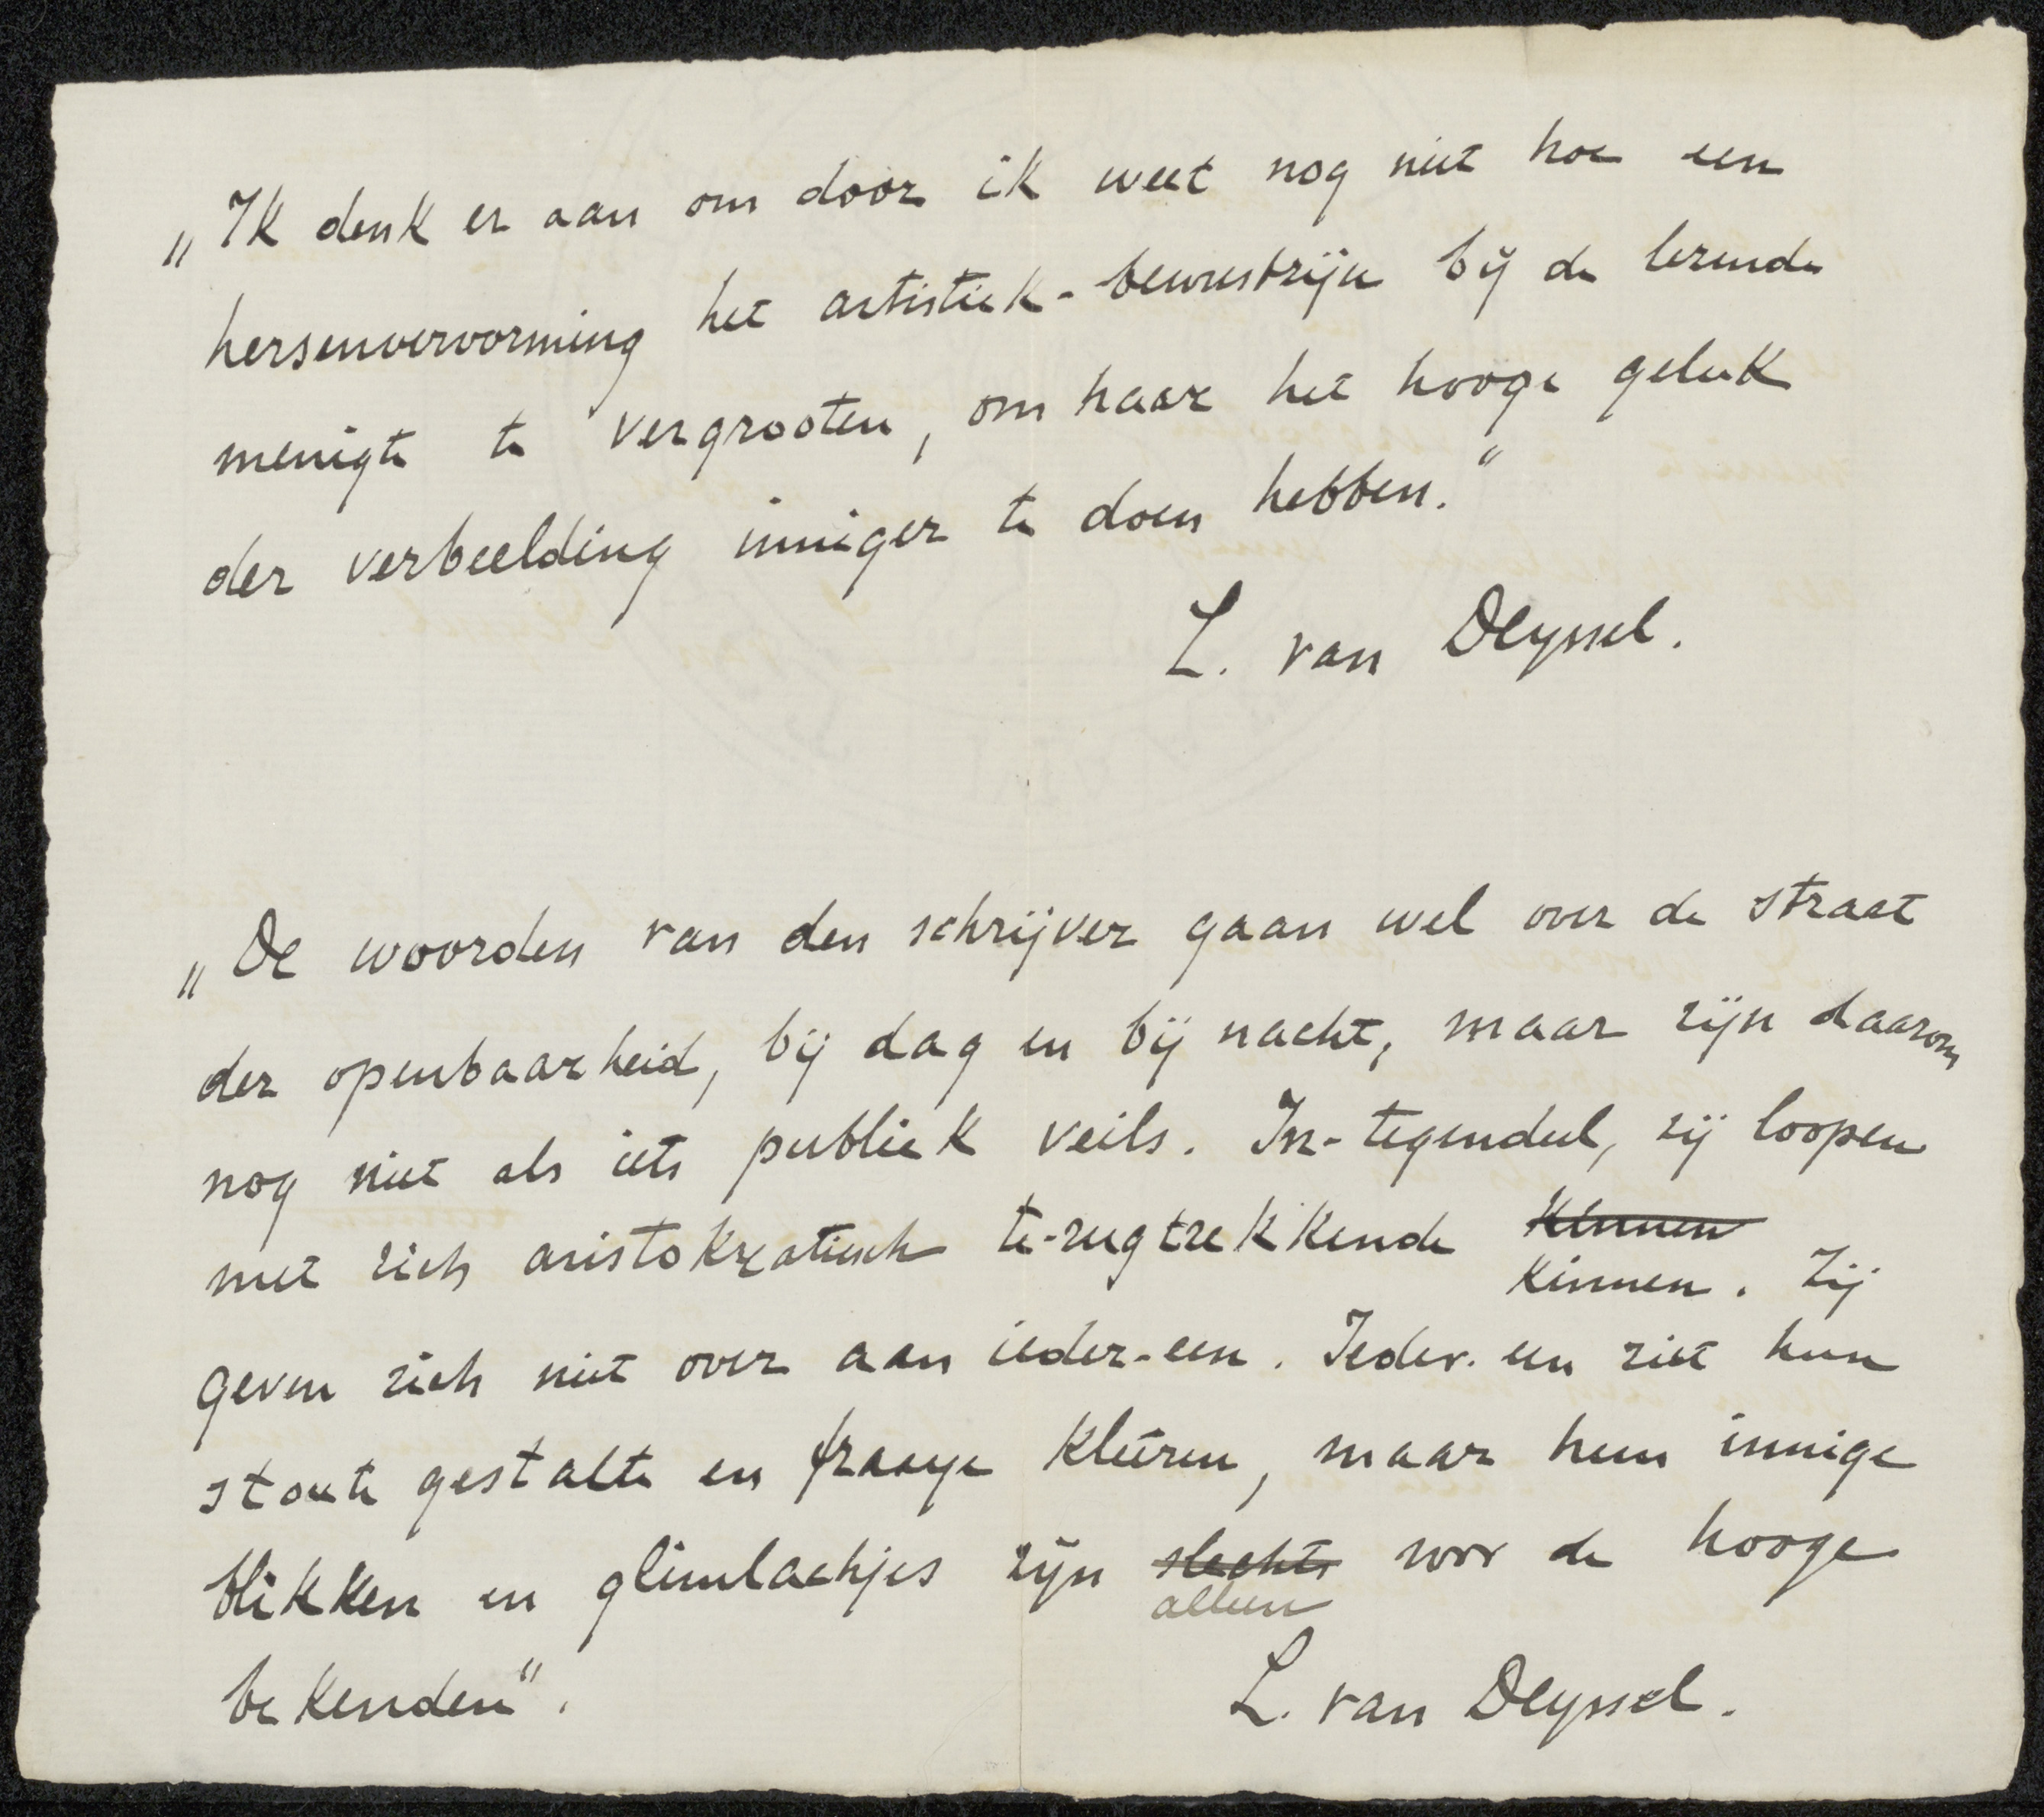 „Ik denk er aan om door ik weet nog niet hoe een
hersenvervorming het artistiek-bewustzijn bij de lezende
menigte te vergrooten, om haar het hooge geluk
der verbeelding inniger te doen hebben."
L. van Deyssel.
„De woorden van den schrijver gaan wel over de straat
der openbaarheid, bij dag en bij nacht, maar zijn daarom
nog niet als iets publiek veils. In-tegendeel, zij loopen
met zich aristokratiesch te-rugtrekkende kinnen
kinnen. Zij
geven zich niet over aan ieder-een. Ieder-een ziet hun
stoute gestalte en fraaye kleeren, maar hun innige
blikken en glimlachjes zijn slechts voor de hooge
alleen
bekenden".
L. van Deyssel.